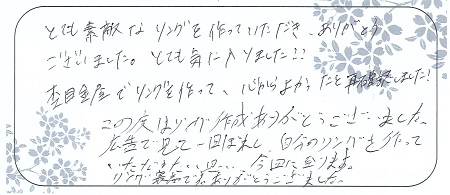 とても素敵なリングを作っていただき、ありがとう
ございました。とても気に入りました!!
杢目金屋でリングを作って、心からよかったと再確認しました!
この度はリング作成ありがとうございました。
広告で見て一目ぼれし、自分のリングを作って
いただきたいと思い、今回に至ります。
ありがとうございました。